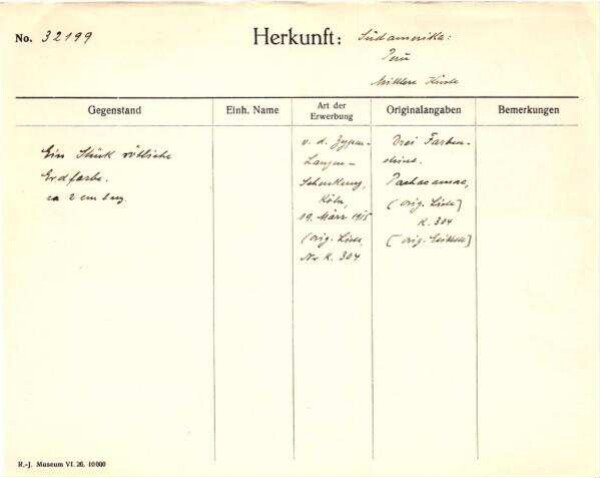 No. 32199
Herkunft: Südamerika:
Peru
Mittlere Küste
Gegenstand
Einh. Name
Art der Erwerbung
Originalangaben
Bemerkungen
Ein Stück rötliche
Erdfarbe.
ca 2 cm lng.
v. d. Zypen-
Langen-
Schenkung,
Köln,
19. März 1915
(orig. Liste
Nr. K. 304
Drei Farben-
steine.
Pachacamac,
(orig. Liste]
K. 304
[orig. Etikett]
R.-J. Museum VI. 26. 10000